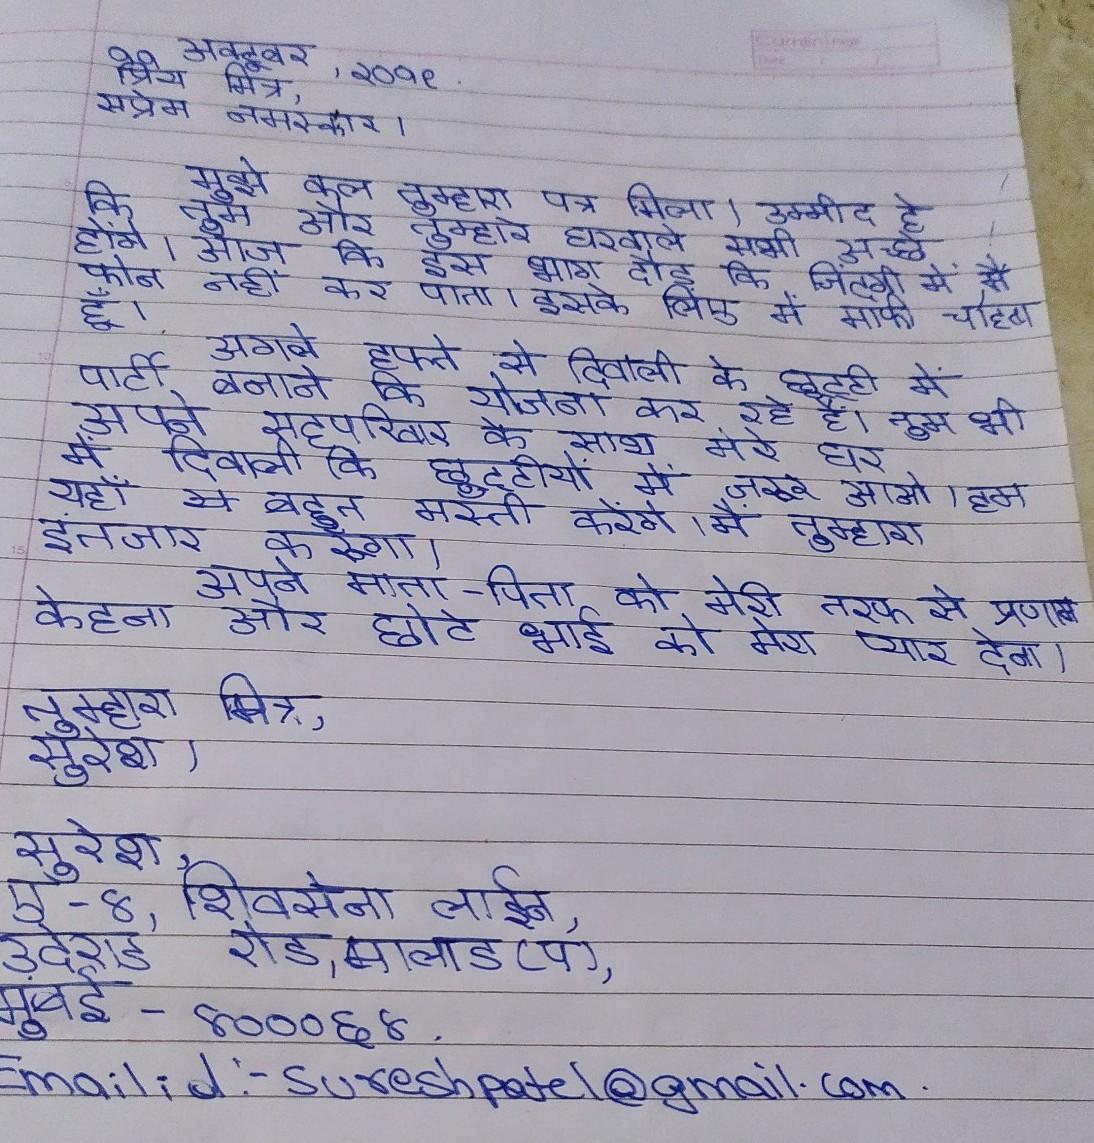 ११ अक्टूबर, २०१९.
प्रिय मित्र,
सप्रेम नमस्कार।
मुझे कल तुम्हारा पत्र मिला। उम्मीद है
कि तुम और तुम्हारे घरवाले सभी अच्छे
होंगे। आज कि इस भाग दौड़ कि जिंदगी में मैं
फोन नहीं कर पाता। इसके लिए में माफी चाहता
हूँ।
अगले हफ्ते से दिवाली के छुट्टी में
पार्टी बनाने कि योजना कर रहे हैं। तुम भी
अपने सहपरिवार के साथ मेरे घर
में दिवाली कि छुट्टीयों में जरूर आओ। हम
यहाँ पे बहुत मस्ती करेंगे। मैं तुम्हारा
इंतजार करूँगा।
अपने माता-पिता को मेरी तरफ से प्रणाम
केहना और छोटे भाई को मेरा प्यार देना।
तुम्हारा मित्र,
सुरेश।
सुरेश,
ए-४, शिवसेना लाईन,
रोड, मालाड (प),
मुंबई - ४०००६४.
Email id :- sureshpatel@gmail.com.